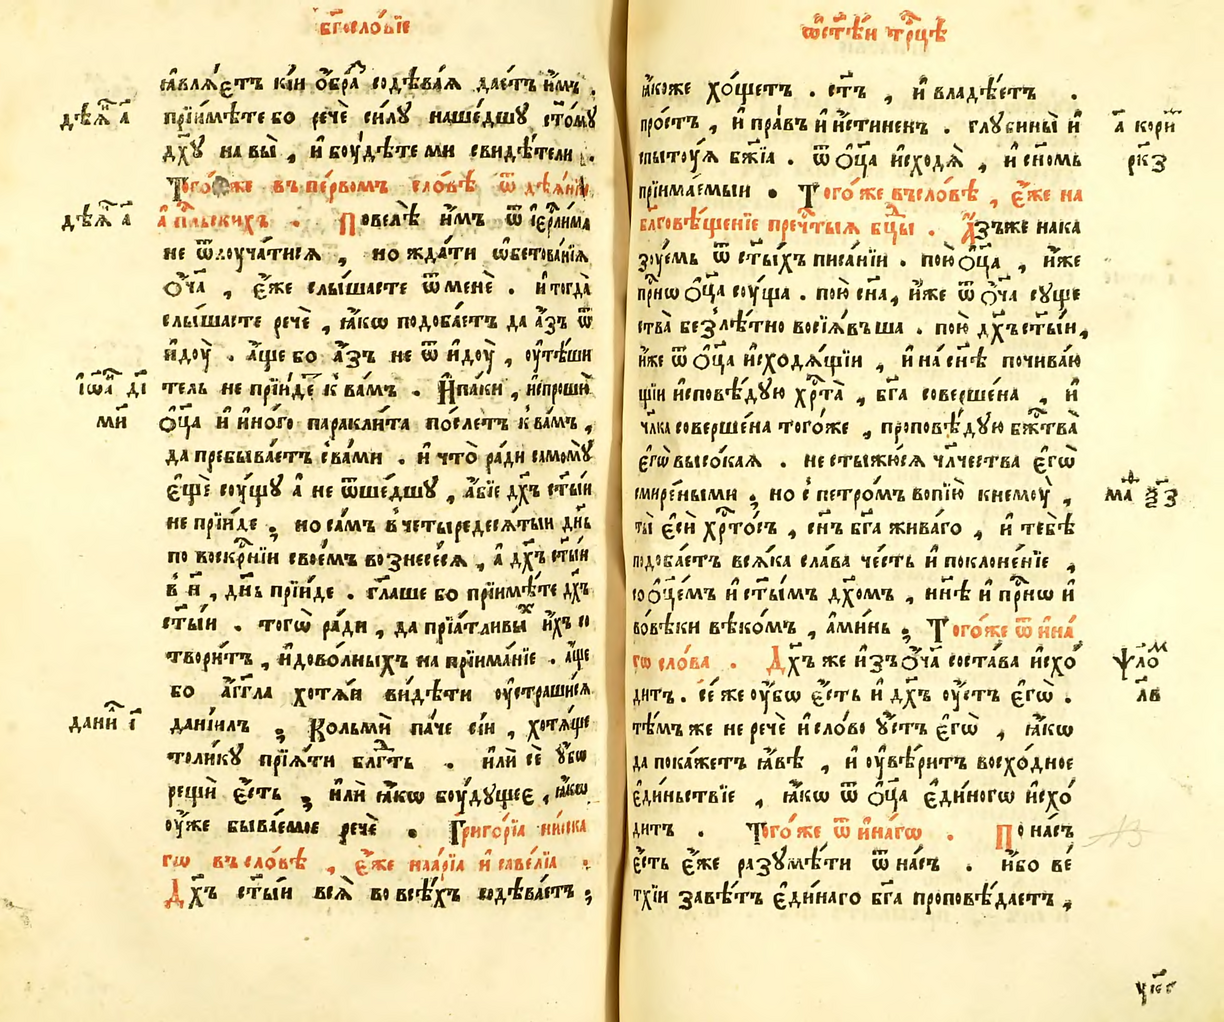 бг҃ословїе
ѡ҆ст҃ѣи трⷪ҇цѣ
ꙗ҆влѧ́етъ кі́и ѻ҆́браⷥ҇ содѣ́ваѧ дає́тъ и҆́мъ .
дѣѧ҃ а҃
прїи́мѣте бо речѐ си́лу наше́дшу ст҃о́му
дх҃у на вы̀ , и҆ бꙋ́дѣте ми свидѣ́тели .
Того́же въ пе́рвомъ сло́вѣ ѿ дѣѧ́нїи
дѣѧ҃ а҃
а҆пⷭ҇льскихъ . Повелѣ̀ и҆́мъ ѿ і҆ерⷭ҇лима
не ѿлꙋча́тисѧ , но жда́ти ѡ҆бѣтова́нїѧ
ѻ҆́ч҃а , є҆́же слы́шасте ѿ менѐ . и҆ тогда̀
слы́шасте речѐ , ꙗ҆́кѡ подоба́етъ да а҆́зъ ѿ
и҆дꙋ̀ . а҆́ще бо а҆́зъ не ѿ и҆дꙋ̀ , ѹ҆тѣ́ши
і҆ѡⷩ҇ ді
тель не прїи́де к ва́мъ . И҆па́ки , и҆спрошꙋ̀
мн
ѻ҆ц҃а и҆ и҆но́го паракли́та по́слетъ к ва́мъ ,
да пребыва́етъ с ва́ми . и҆ что̀ ра́ди самомꙋ̀
є҆щѐ сꙋ́щу а҆ не ѿше́дшу , а҆́бїе дх҃ъ ст҃ы́и
не прїи́де ; но са́мъ в четы́редесѧ́тыи дн҃ь
по воскрⷭ҇нїи свое́мъ вознесе́сѧ , а҆ дх҃ъ ст҃ы́и
в н҃ , дн҃ь прїи́де . гл҃аше бо прїи́мѣте дх҃ъ
ст҃ы́и . тогѡ̀ ра́ди , да прїѧ́тливыⷯ и҆́хъ со
твори́тъ , и҆ дово́лныхъ на прїима́нїе . а҆́ще
бо а҆́гг҃ла хотѧ́и ви́дѣти ѹ҆страши́сѧ
даниⷧ҇ і҃
данїи́лъ ; Ко́льмѝ па́че сі́и , хотѧ́ще
толи́ку прїѧ́ти блг҃ть . и҆лѝ сѐ ѹ҆́бѡ
рещѝ є҆́сть ; и҆лѝ ꙗ҆́кѡ бꙋ́дущее , ꙗ҆́кѡ
ѹ҆́же быва́емое речѐ . Григо́рїа ни́ска
гѡ въ сло́вѣ , є҆́же на а҆рі́а и҆ саве́лїа :
Дх҃ъ ст҃ы́и всѧ̀ во всѣ́хъ содѣ́ваетъ ;
ꙗ҆́коже хо́щетъ . ст҃ъ , и҆ владѣ́етъ .
про́стъ , и҆ пра́въ и҆ и҆́стиненъ . глубины̀ и҆
а҃ кориⷩ҇
рк҃з
спытꙋ́ѧ бж҃їа . ѿ ѻ҆ц҃а и҆сходѧ̀ , и҆ сн҃омь
прїима́емыи . Того́же въ сло́вѣ , є҆́же на
бл҃говѣ́щенїе преч҃тыѧ бц҃ы . А҆́зъже нака
зꙋ́емь ѿ ст҃ы́хъ писа́нїи . пою̀ ѻ҆ц҃а , и҆́же
прⷭ҇нѡ ѻ҆ц҃а сꙋ́ща . пою̀ сн҃а , и҆́же ѿ ѻ҆́ч҃а суще
ства̀ безлѣ́тно восїѧ́вша . пою̀ дх҃ъ ст҃ы́и ,
и҆́же ѿ ѻ҆ц҃а и҆сходѧ́щїи , и҆ на сн҃ѣ почива́ю
щїи и҆сповѣ́дую хрⷭ҇та̀ , бг҃а соверше́на , и҆
чл҃ка соверше́на того́же , проповѣ́дую бж҃тва̀
є҆гѡ̀ высо́каѧ . не стыжю́сѧ чл҃чества є҆гѡ̀
смире́ными ; но с петро́мъ вопїю̀ к нему̀ ,
маⷴ҇ ѯ҃з
ты̀ є҆сѝ хрⷭ҇то́съ , сн҃ъ бг҃а жива́го , и҆ тебѣ̀
подоба́етъ всѧ́ка сла́ва че́сть и҆ поклоне́нїе ,
со ѻ҆ц҃е́мъ и҆ ст҃ы́мъ дх҃омъ , нн҃ѣ и҆ прⷭ҇нѡ и҆
во́вѣки вѣко́мъ , а҆ми́нь ; Того́же ѿ и҆на́
гѡ сло́ва . Дх҃ъ же и҆зъ ѻ҆́ч҃а соста́ва и҆схо́
ѱало
дитъ . се́ же ѹ҆́бѡ є҆́сть и҆ дх҃ъ ѹ҆́стъ є҆гѡ̀ .
л҃в
тѣ́мъ же не речѐ и҆ сло́во ѹ҆́стъ є҆гѡ̀ , ꙗ҆́кѡ
да пока́жетъ ꙗ҆́вѣ , и҆ ѹ҆вѣ́ритъ восхо́дное
є҆ди́ньствїе , ꙗ҆́кѡ ѿ ѻ҆ц҃а є҆ди́ногѡ и҆схо́
дитъ . Того́же ѿ и҆на́гѡ . По на́съ
є҆́сть є҆́же разумѣ́ти ѿ на́съ . и҆́бо ве́
тхїи завѣ́тъ є҆ди́наго бг҃а проповѣ́даетъ ,